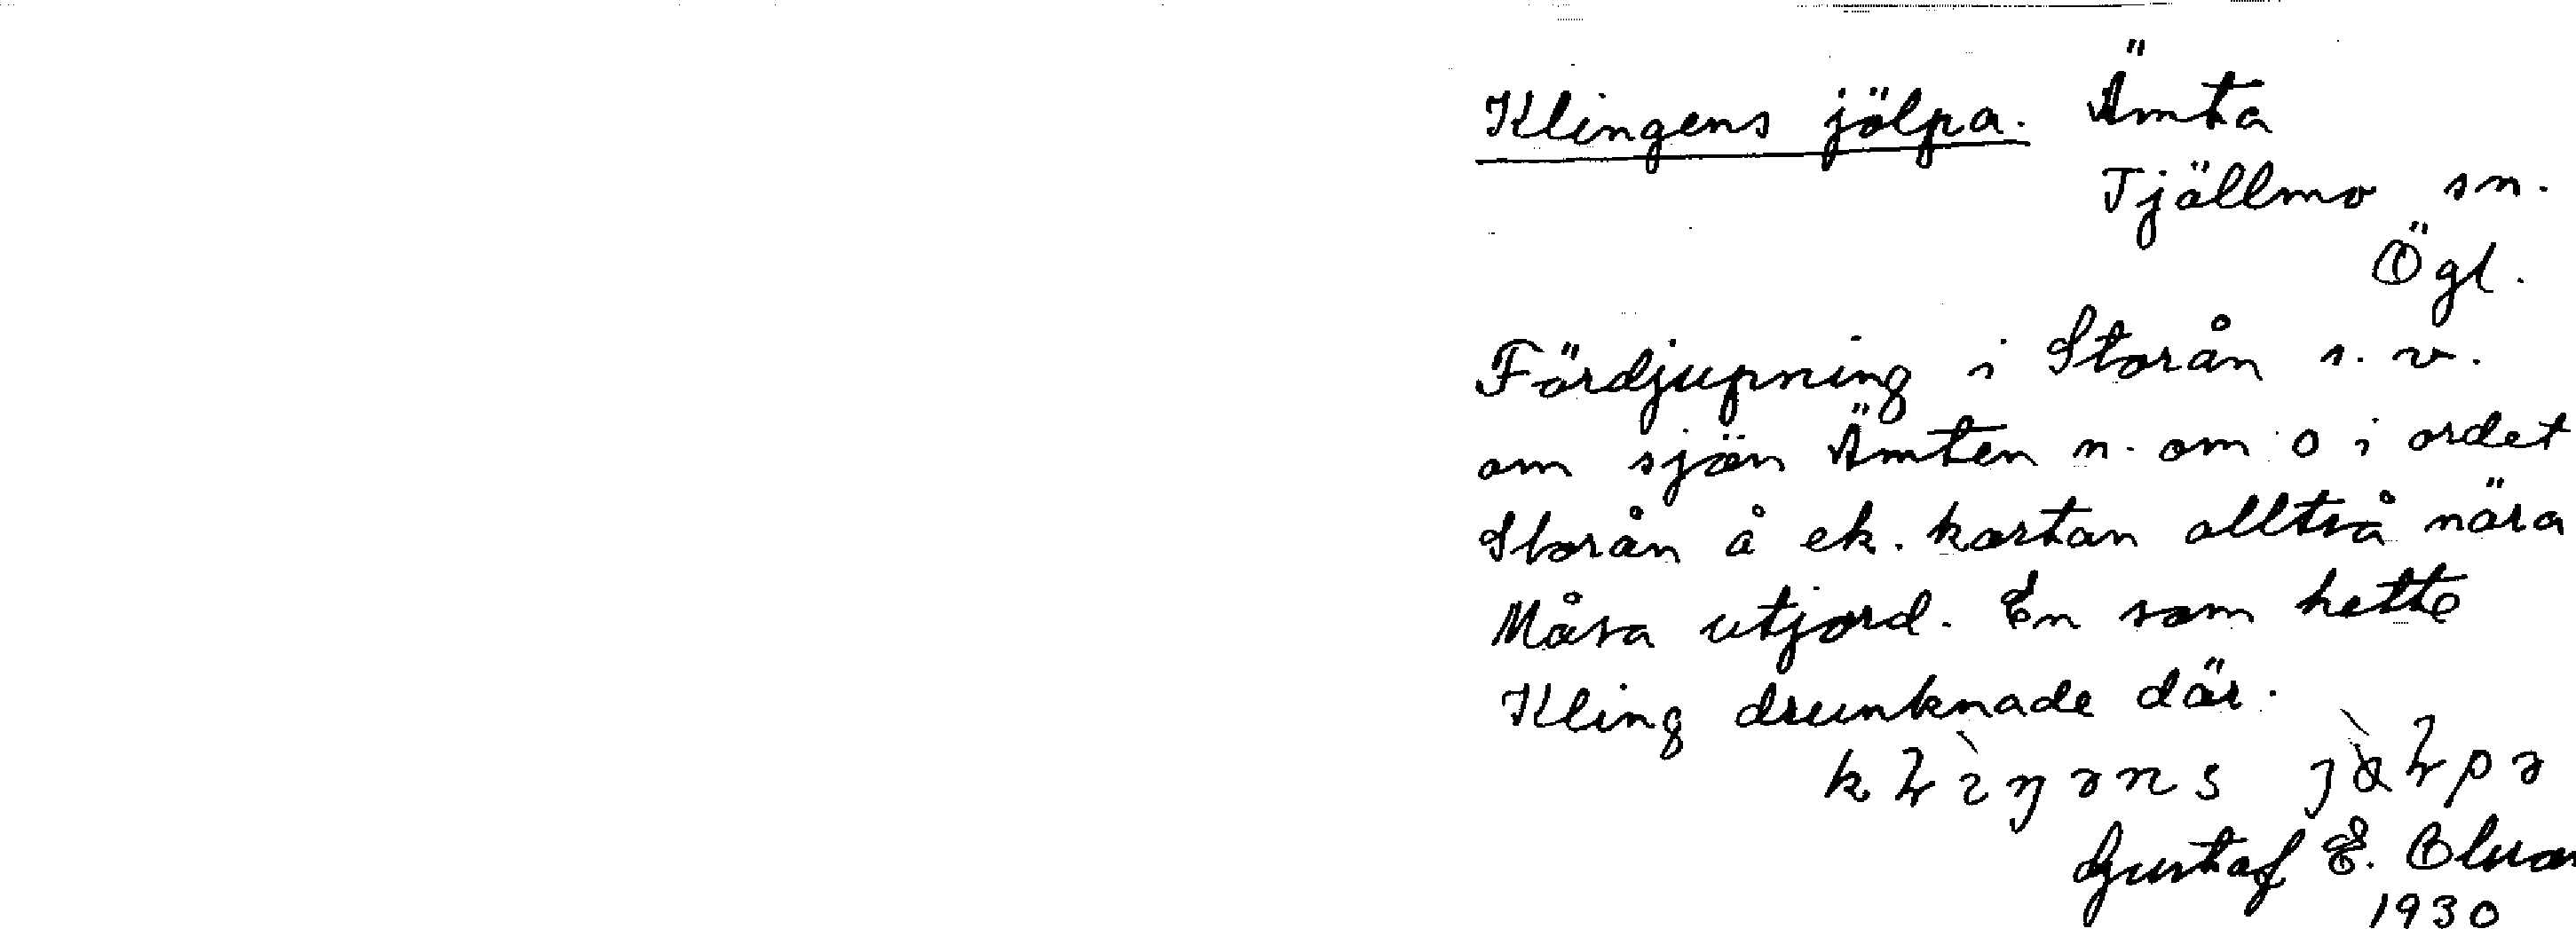 Klingens jölpa. Ämta
Tjällmo sn.
Ögl.
Fördjupning i Storån s. v.
om sjön Ämten n. om o i ordet
Storån å ek. kartan alltså nära
Måsa utjord. En som hette
Kling drunknade där.
Gustaf E. Olsson
1930